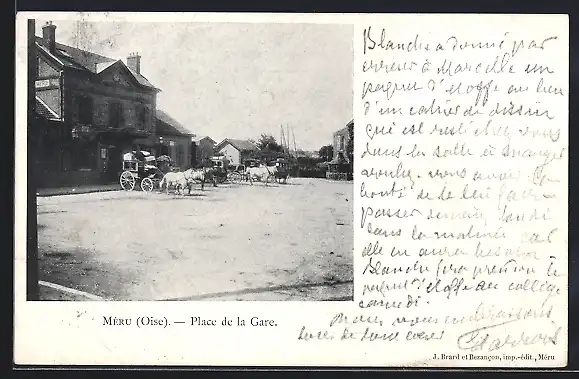 Blanche a donné par
erreur à Marcelle un
paquet d'étoffe au lieu
d'un cahier de dessin
qui est resté chez vous
dans la salle à manger
voulez-vous avoir la
bonté de le lui faire
passer demain lundi
dans la matinée car
elle en aura besoin
Blanche fera prendre le
paquet d'étoffe au collège
samedi.
Nous vous embrassons
tous de tout cœur
MÉRU (Oise). — Place de la Gare.
J. Brard et Bezançon, imp.-édit., Méru